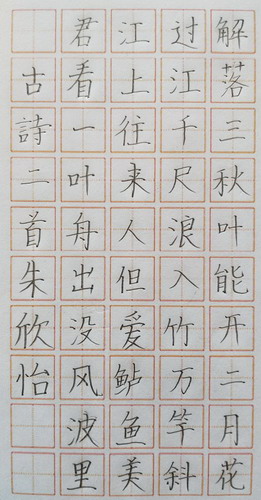 解落三秋叶能开二月花
过江千尺浪入竹万竿斜
江上往来人但爱鲈鱼美
君看一叶舟出没风波里
古詩二首朱欣怡